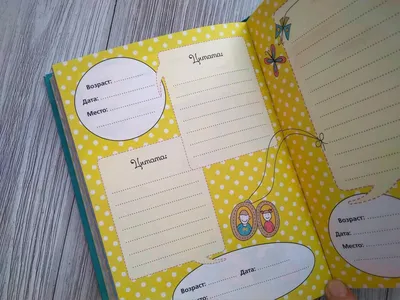 Возраст:
Дата:
Место:
Цитата:
Цитата:
Возраст:
Дата:
Место:
Возраст:
Дата:
Место: